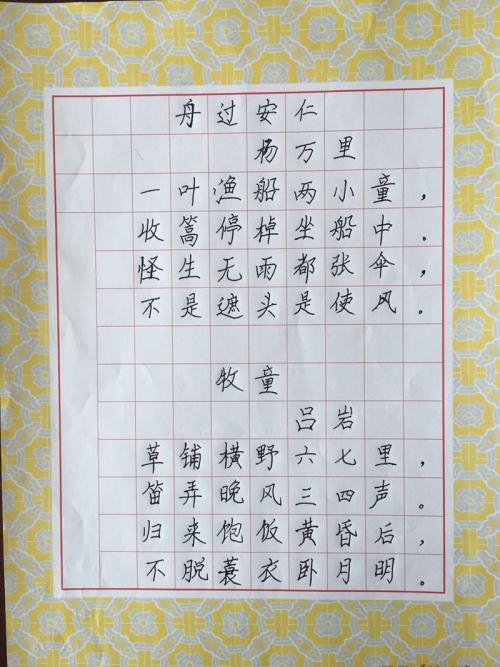 舟过安仁
杨万里
一叶渔船两小童，
收篙停棹坐船中。
怪生无雨都张伞，
不是遮头是使风。
牧童
吕岩
草铺横野六七里，
笛弄晚风三四声。
归来饱饭黄昏后，
不脱蓑衣卧月明。